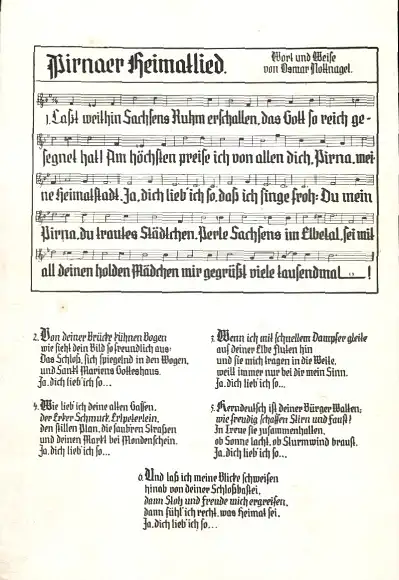 Pirnaer Heimatlied.
Wort und Weise
von Osmar Nottnagel.
1. Laßt weithin Sachsens Ruhm erschallen, das Gott so reich ge-
segnet hat! Am höchsten preise ich von allen dich, Pirna, mei-
ne Heimatstadt. Ja, dich lieb' ich so, daß ich singe froh: Du mein
Pirna, du trautes Städtchen, Perle Sachsens im Elbetal, sei mit
all deinen holden Mädchen mir gegrüßt viele tausendmal !
2. Von deiner Brücke kühnen Bogen
wie sieht dein Bild so freundlich aus:
Das Schloß, sich spiegelnd in den Wogen,
und Sankt Mariens Gotteshaus.
Ja, dich lieb' ich so...
3. Wenn ich mit schnellem Dampfer gleite
auf deiner Elbe Fluten hin
und sie mich tragen in die Weite,
weilt immer nur bei dir mein Sinn.
Ja, dich lieb' ich so...
4. Wie lieb' ich deine alten Gassen,
der Erker Schmuck, Erlpeterlein,
den stillen Plan, die saubren Straßen
und deinen Markt bei Mondenschein.
Ja, dich lieb' ich so...
5. Kerndeutsch ist deiner Bürger Walten;
wie freudig schaffen Stirn und Faust!
In Treue sie zusammenhalten,
ob Sonne lacht, ob Sturmwind braust.
Ja, dich lieb' ich so...
6. Und laß ich meine Blicke schweifen
hinab von deiner Schloßbastei,
dann Stolz und Freude mich ergreifen,
dann fühl' ich recht, was Heimat sei.
Ja, dich lieb' ich so...